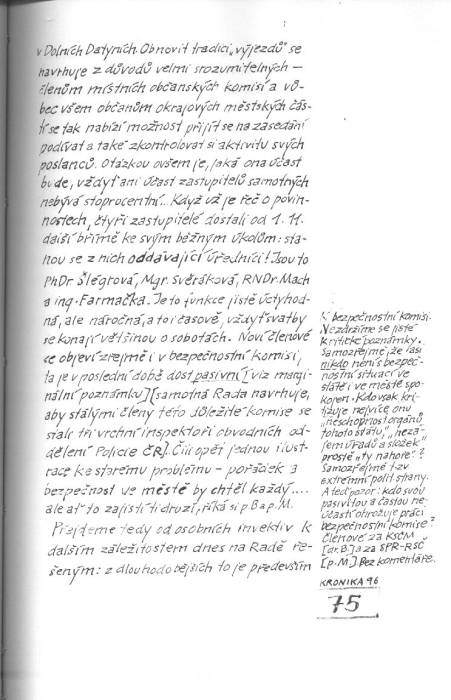 v Dolních Datyních. Obnovit tradici „výjezdů" se
navrhuje z důvodů velmi srozumitelných –
členům místních občanských komisí a vů-
bec všem občanům okrajových městských čás-
tí se tak nabízí možnost přijít se na zasedání
podívat a také zkontrolovat si aktivitu svých
poslanců. Otázkou ovšem je, jaká ona účast
bude, vždyť ani účast zastupitelů samotných
nebývá stoprocentní... Když už je řeč o povin-
nostech, čtyři zastupitelé dostali od 1. 11.
další břímě ke svým běžným úkolům: sta-
nou se z nich oddávající úředníci! Jsou to
PhDr Šlégrová, Mgr. Svěráková, RNDr. Mach
a ing. Farmačka. Je to funkce jistě úctyhod-
ná, ale náročná, a to i časově, vždyť svatby
se konají většinou o sobotách. Noví členové
se objeví zřejmě i v bezpečnostní komisi,
ta je v poslední době dost pasivní [viz margi-
nální poznámky] [samotná Rada navrhuje,
aby stálými členy této důležité komise se
stali tři vrchní inspektoři obvodních od-
dělení Policie ČR]. Čili opět jednou ilust-
race ke starému problému – pořádek a
bezpečnost ve městě by chtěl každý....
ale ať to zajistí ti druzí, říká si p. B a p. M.
Přejděme tedy od osobních invektiv k
dalším záležitostem dnes na Radě ře-
šeným: z dlouhodobějších to je především
K bezpečnostní komisi.
Nezdržíme se jisté
kritické poznámky.
Samozřejmě, že asi
nikdo není s bezpeč-
nostní situací ve
státě i ve městě spo-
kojen. Kdo však kri-
tizuje nejvíce onu
„neschopnost orgánů
tohoto státu", „nezá-
jem úřadů a složek"
prostě „ty nahoře"?
Samozřejmě tzv.
extrémní polit. strany.
A teď pozor: kdo svou
pasivitou a častou ne-
účastí ohrožuje práci
bezpečnostní komise?
Členové za KSČM
[dr. B.] a za SPR-RSČ
[p. M.] Bez komentáře.
KRONIKA 96
75